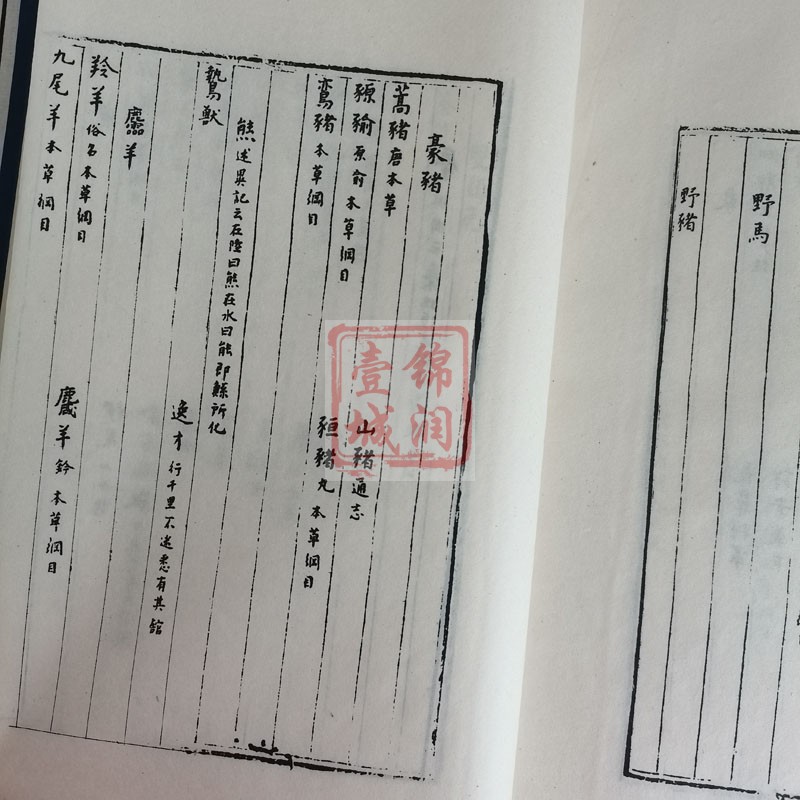 野馬
野豬
豪豬
蒿豬 唐本草
豲貐 原俞 本草綱目 山豬 通志
鸞豬 本草綱目 狟豬 丸 本草綱目
熊 述異記云在陸曰熊在水曰能即鯀所化
鷙獸 逸才 行千里不迷悉有其館
麢羊
羚羊 俗名 本草綱目
九尾羊 本草綱目 麙羊 鈐 本草綱目
錦潤
壹城